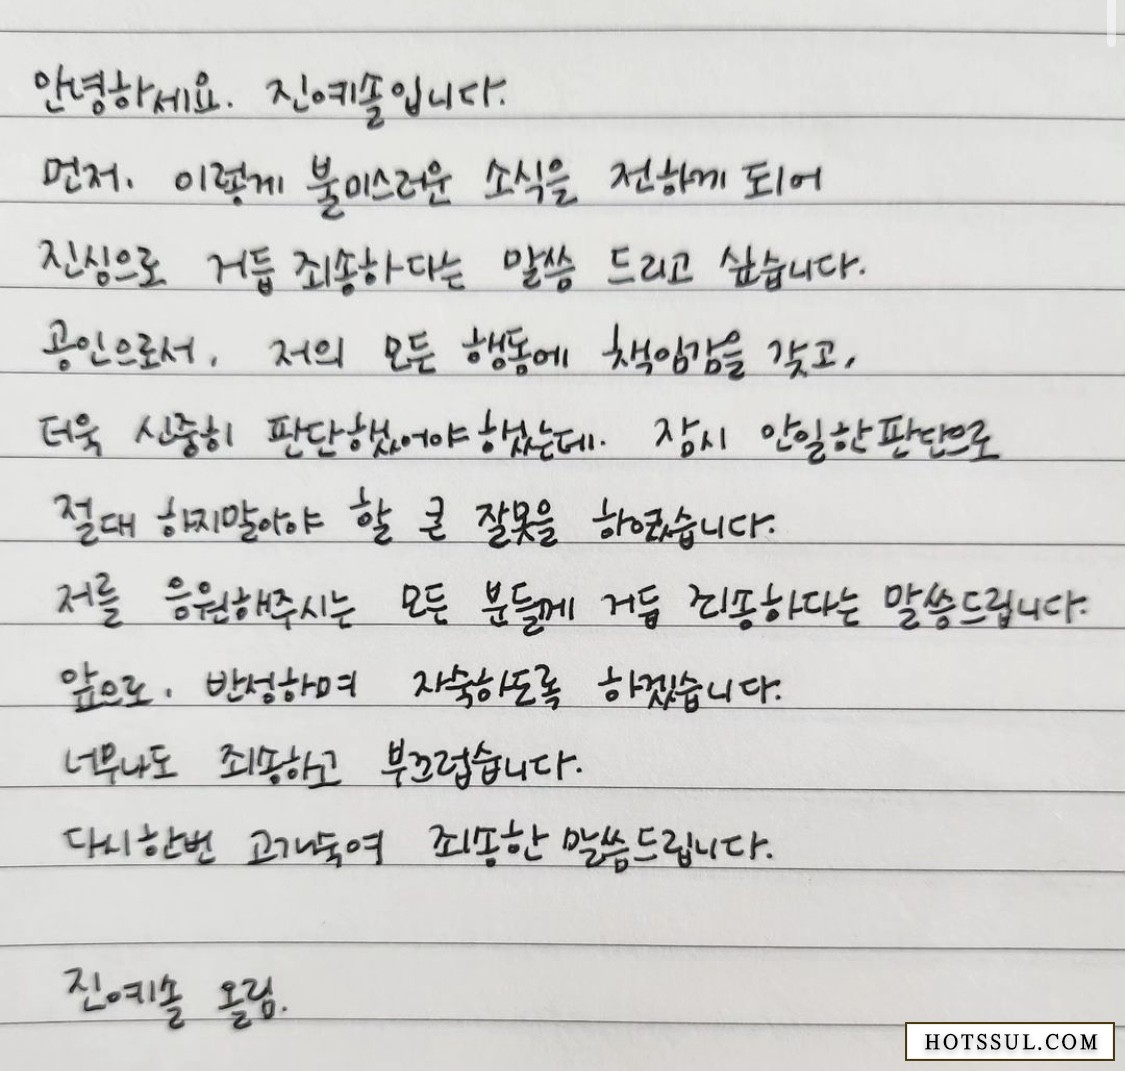 안녕하세요. 진예솔입니다.
먼저, 이렇게 불미스러운 소식을 전하게 되어
진심으로 거듭 죄송하다는 말씀 드리고 싶습니다.
공인으로서, 저의 모든 행동에 책임감을 갖고,
더욱 신중히 판단했어야했는데, 잠시 안일한판단으로
절대 하지말아야 할 큰 잘못을 하였습니다.
저를 응원해주시는 모든 분들께 거듭 죄송하다는 말씀드립니다.
앞으로, 반성하며 자숙하도록 하겠습니다.
너무나도 죄송하고 부끄럽습니다.
다시한번 고개숙여 죄송한 말씀드립니다.
진예솔 올림.
HOTSSUL.COM